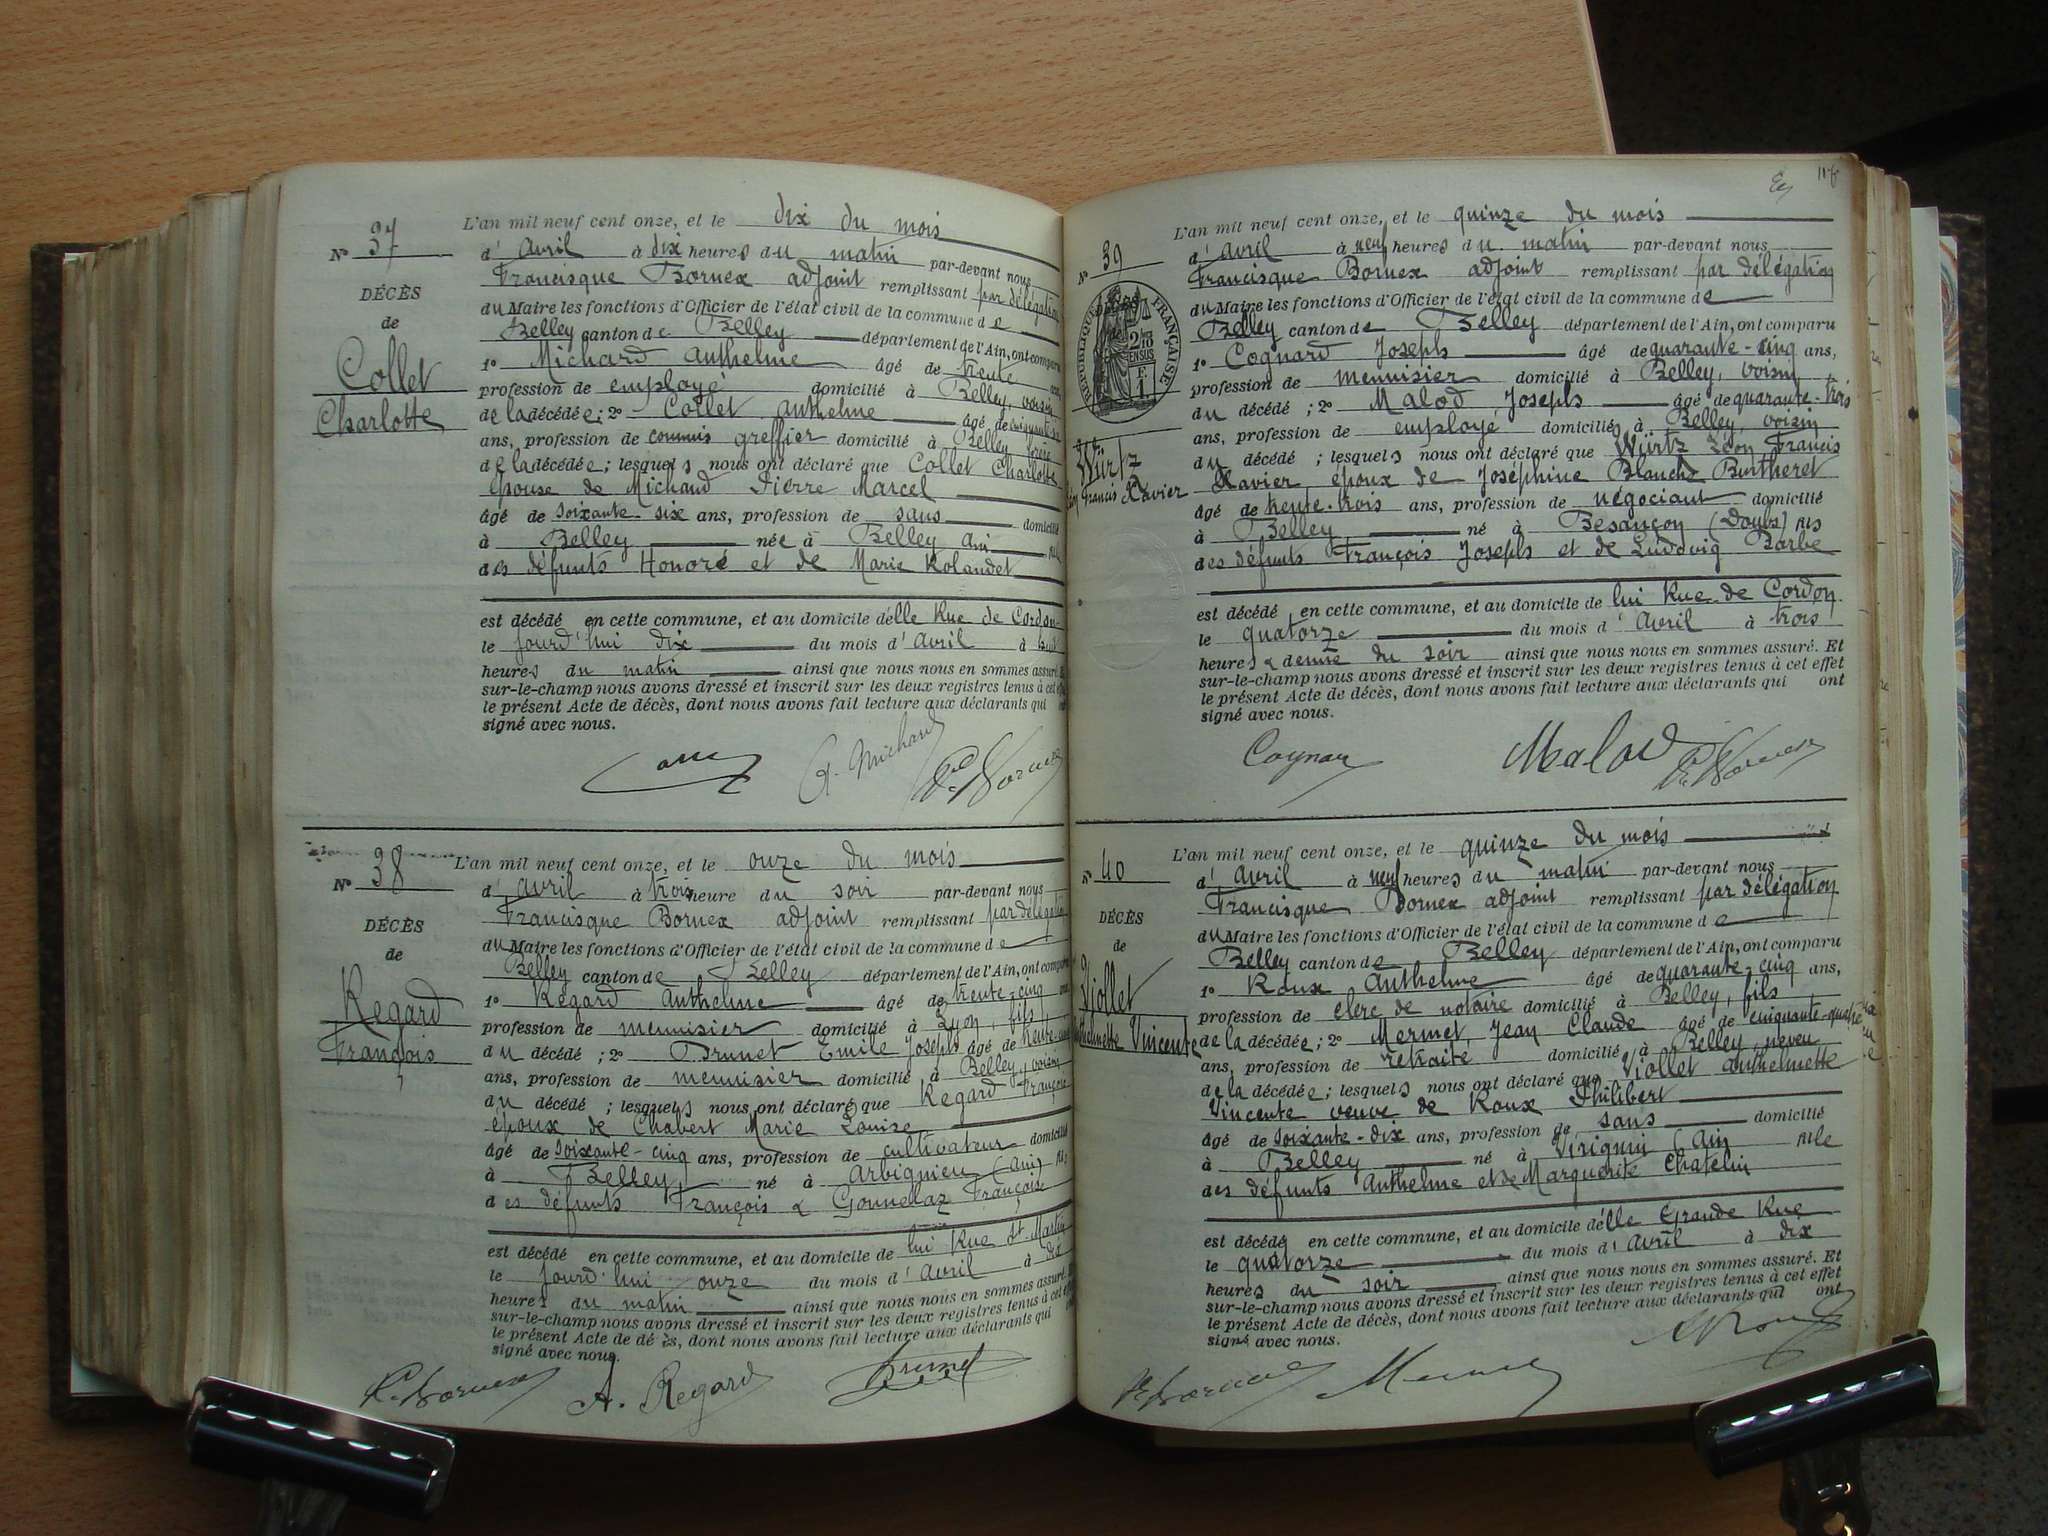 L'an mil neuf cent onze, et le dix du mois
N° 37
d'avril à dix heures du matin par-devant nous
Francisque Bornex adjoint remplissant par délégation
DÉCÈS
du Maire les fonctions d'Officier de l'état civil de la commune de
de
Belley canton de Belley département de l'Ain, ont comparu
Collet
1° Michard Anthelme âgé de trente ans,
profession de employé domicilié à Belley, voisin
Charlotte
de la décédée; 2° Collet Anthelme âgé de
ans, profession de commis greffier domicilié à Belley frère
de la décédée; lesquels nous ont déclaré que Collet Charlotte
épouse de Michaud Pierre Marcel
âgé de soixante-six ans, profession de sans domicilié
à Belley née à Belley Ain
des défunts Honoré et de Marie Rolandet
est décédé en cette commune, et au domicile d'elle Rue de Cordon
le jourd'hui dix du mois d'avril à huit
heures du matin ainsi que nous nous en sommes assuré. Et
sur-le-champ nous avons dressé et inscrit sur les deux registres tenus à cet effet
le présent Acte de décès, dont nous avons fait lecture aux déclarants qui ont
signé avec nous.
A. Michard Bornex
L'an mil neuf cent onze, et le onze du mois
N° 38
d'avril à trois heure du soir par-devant nous
Francisque Bornex adjoint remplissant par délégation
DÉCÈS
du Maire les fonctions d'Officier de l'état civil de la commune de
de
Belley canton de Belley département de l'Ain, ont comparu
Regard
1° Regard Anthelme âgé de trente-cinq ans
profession de menuisier domicilié à Lyon, fils
François
du décédé; 2° Brunet Emile Joseph âgé de
ans, profession de menuisier domicilié à Belley, voisin
du décédé; lesquels nous ont déclaré que Regard François
époux de Chabert Marie Louise
âgé de soixante-cinq ans, profession de cultivateur domicilié
à Belley né à Arbignieu (Ain) fils
des défunts François & Gonnelaz Françoise
est décédé en cette commune, et au domicile de lui Rue St Martin
le jourd'hui onze du mois d'avril à dix
heures du matin ainsi que nous nous en sommes assuré. Et
sur-le-champ nous avons dressé et inscrit sur les deux registres tenus à cet effet
le présent Acte de décès, dont nous avons fait lecture aux déclarants qui ont
signé avec nous.
Bornex A. Regard Brunet
L'an mil neuf cent onze, et le quinze du mois
N° 39
d'avril à neuf heures du matin par-devant nous
Francisque Bornex adjoint remplissant par délégation
RÉPUBLIQUE FRANÇAISE
du Maire les fonctions d'Officier de l'état civil de la commune de
Belley canton de Belley département de l'Ain, ont comparu
1° Cognard Joseph âgé de quarante-cinq ans,
profession de menuisier domicilié à Belley, voisin
du décédé; 2° Malod Joseph âgé de quarante-trois
ans, profession de employé domiciliés à Belley, voisin
Würtz
du décédé; lesquels nous ont déclaré que Würtz Léon Francis
Léon Francis Xavier
Xavier, époux de Joséphine Blanche Burtheret
âgé de trente-trois ans, profession de négociant domicilié
à Belley né à Besançon (Doubs) fils
des défunts François Joseph et de Ludovig Barbe
est décédé en cette commune, et au domicile de lui Rue de Cordon
le quatorze du mois d'avril à trois
heures & demie du soir ainsi que nous nous en sommes assuré. Et
sur-le-champ nous avons dressé et inscrit sur les deux registres tenus à cet effet
le présent Acte de décès, dont nous avons fait lecture aux déclarants qui ont
signé avec nous.
Cognar Malod Bornex
L'an mil neuf cent onze, et le quinze du mois
N° 40
d'avril à neuf heures du matin par-devant nous
Francisque Bornex adjoint remplissant par délégation
DÉCÈS
du Maire les fonctions d'Officier de l'état civil de la commune de
de
Belley canton de Belley département de l'Ain, ont comparu
Viollet
1° Roux Anthelme âgé de quarante-cinq ans,
profession de clerc de notaire domicilié à Belley, fils
Anthelmette Vincente
de la décédée; 2° Mermet, Jean Claude âgé de cinquante-quatre
ans, profession de retraité domicilié à Belley, neveu
de la décédée; lesquels nous ont déclaré que Viollet Anthelmette
Vincente veuve de Roux Philibert
âgé de soixante-dix ans, profession de sans domicilié
à Belley né à Virignin (Ain fille
des défunts Anthelme et de Marguerite Chatelin
est décédé en cette commune, et au domicile d'elle Grande Rue
le quatorze du mois d'avril à dix
heures du soir ainsi que nous nous en sommes assuré. Et
sur-le-champ nous avons dressé et inscrit sur les deux registres tenus à cet effet
le présent Acte de décès, dont nous avons fait lecture aux déclarants qui ont
signé avec nous.
Bornex Mermet A Roux